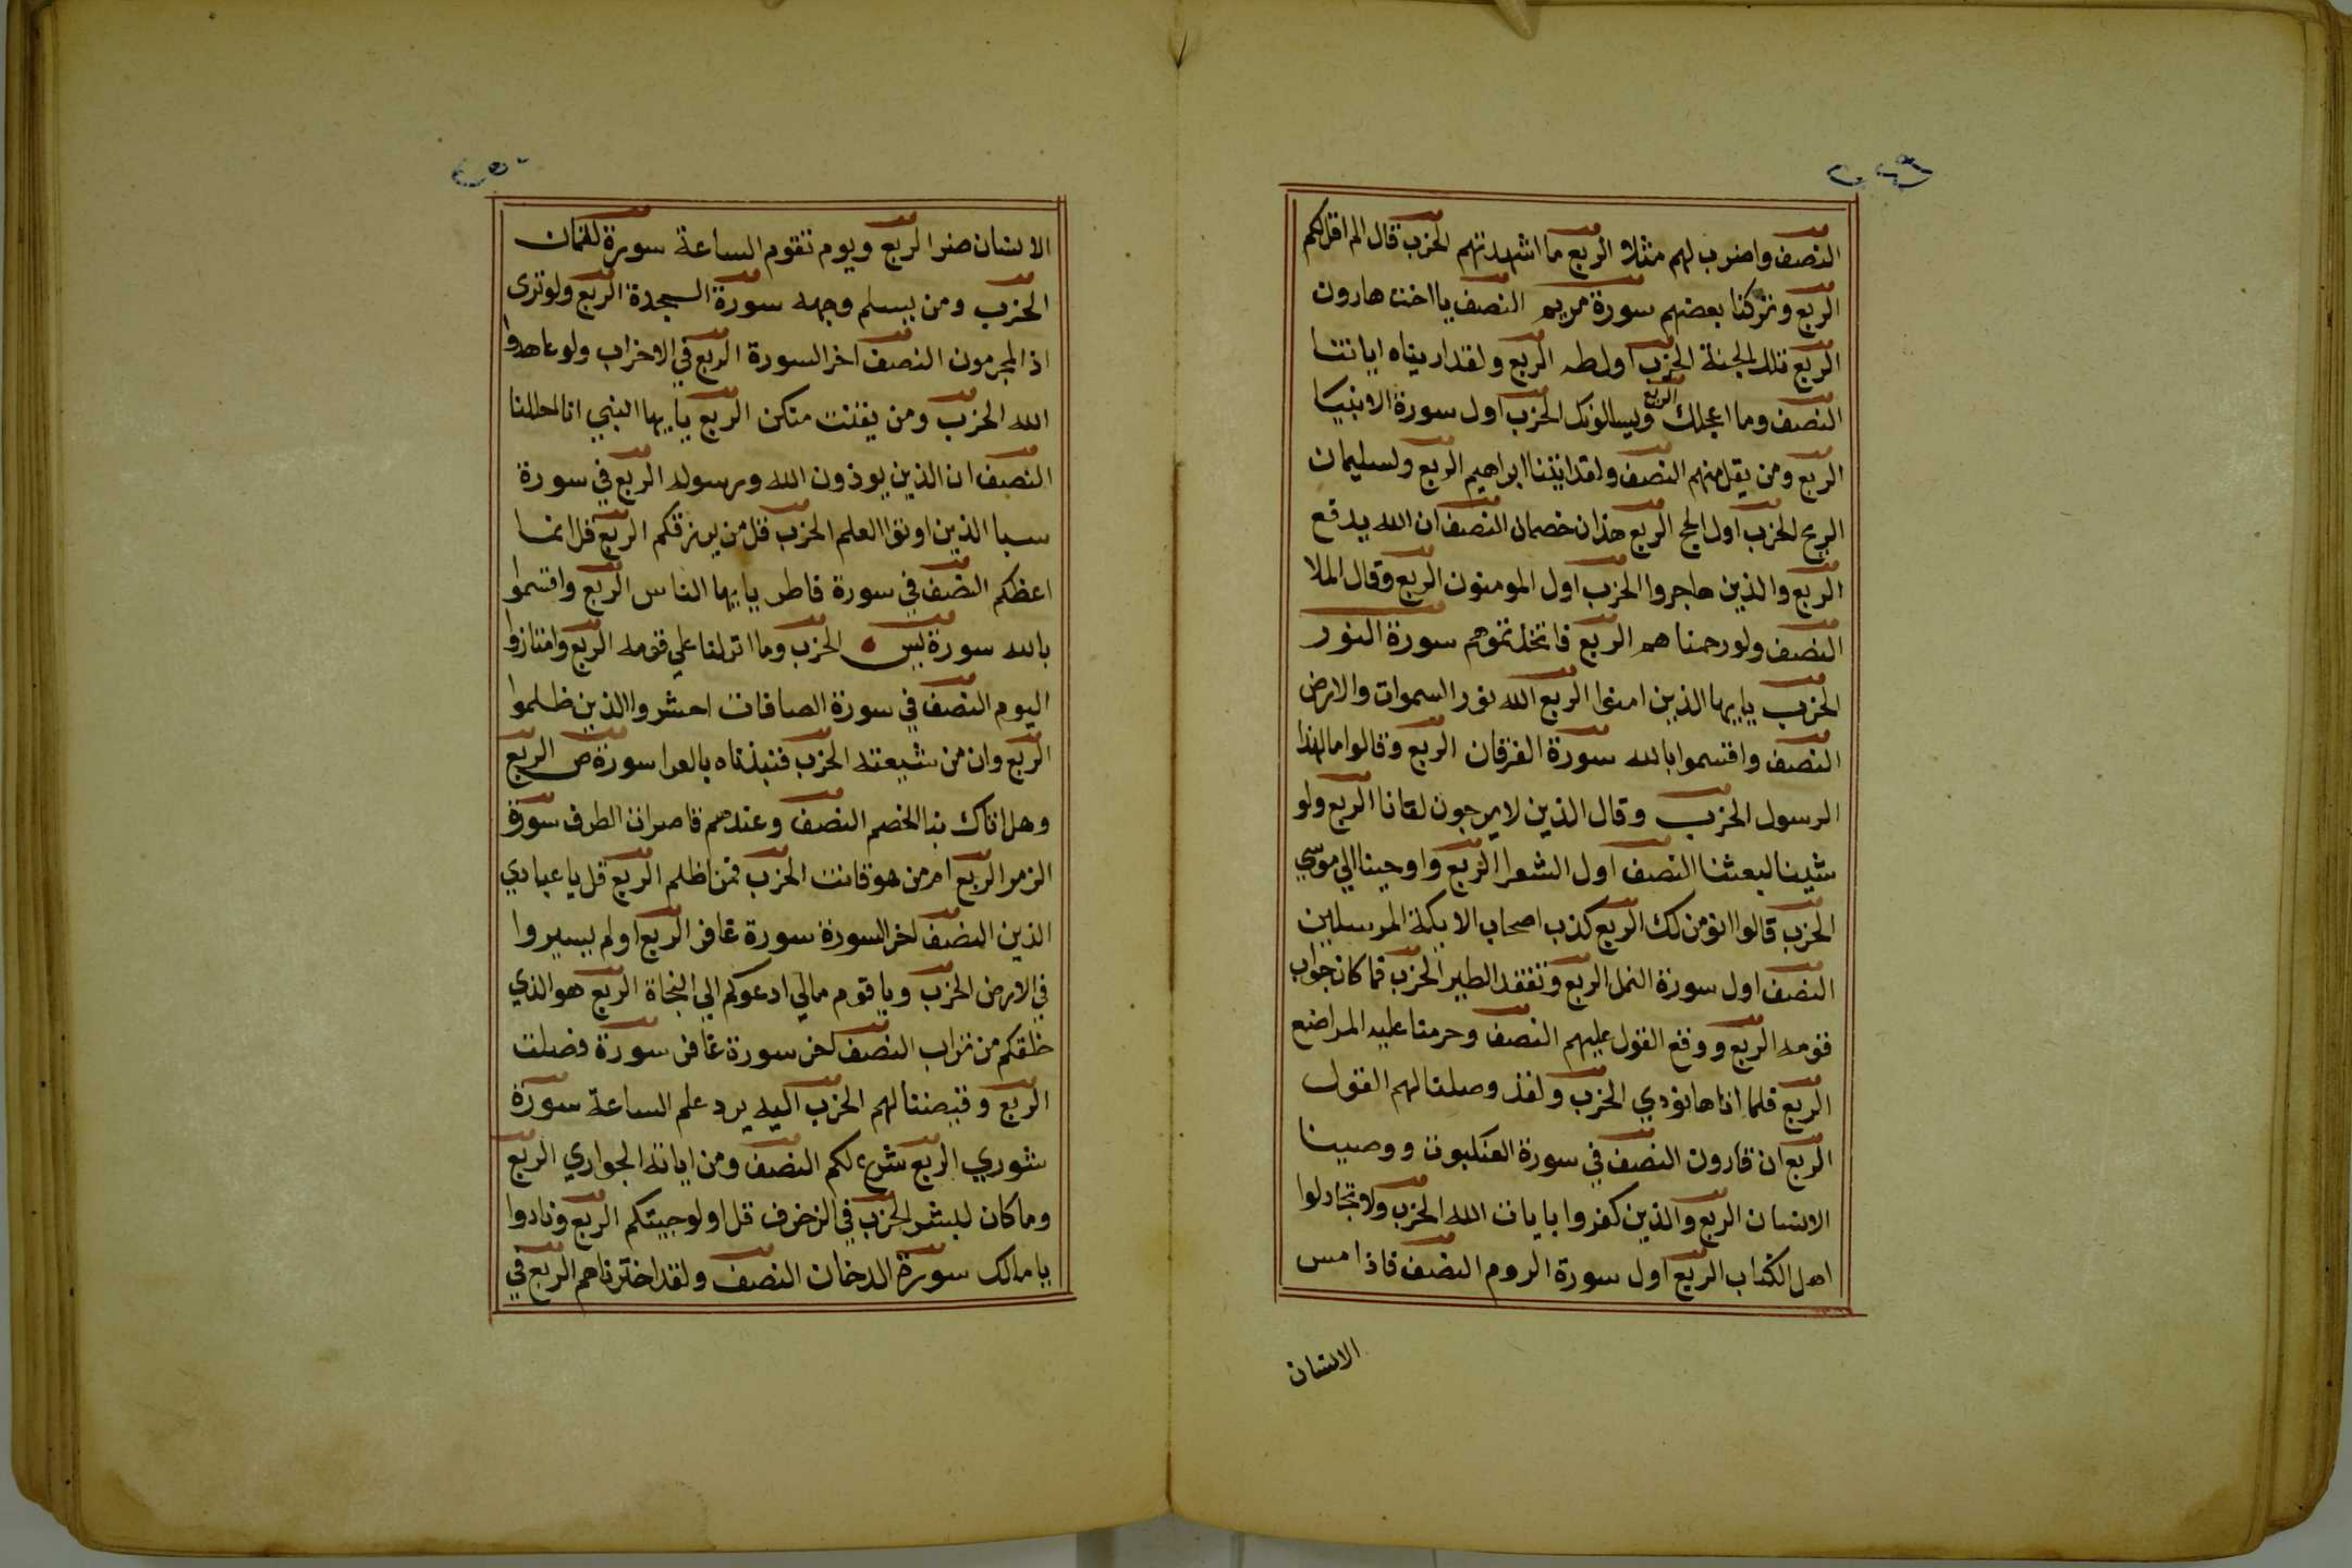 ٢٤٩
النصف واضرب لهم مثلا الربع ما اشهدتهم الحزب قال الم اقل لكم
الربع وتركنا بعضهم سورة مريم النصف يا اخت هارون
الربع تلك الجنة الحزب اول طه الربع ولقد اريناه اياتنا
النصف وما اعجلك الربع ويسالونك الحزب اول سورة الانبيا
الربع ومن يقل منهم النصف ولقد اتينا ابراهيم الربع ولسليمان
الريح الحزب اول الحج الربع هذان خصمان النصف ان الله يدفع
الربع والذين هاجروا الحزب اول المومنون الربع وقال الملا
النصف ولو رحمناهم الربع فاتخذتموهم سورة النور
الحزب يايها الذين امنوا الربع الله نور السموات والارض
النصف واقسموا بالله سورة الفرقان الربع وقالوا مال هذا
الرسول الحزب وقال الذين لا يرجون لقانا الربع ولو
شينا لبعثنا النصف اول الشعرا الربع واوحينا الي موسي
الحزب قالوا انومن لك الربع كذب اصحاب الايكة المرسلين
النصف اول سورة النمل الربع وتفقد الطير الحزب فما كان جواب
قومه الربع ووقع القول عليهم النصف وحرمنا عليه المراضع
الربع فلما اتاها نودي الحزب ولقد وصلنا لهم القول
الربع ان قارون النصف في سورة العنكبوت ووصينا
الانسان الربع والذين كفروا بايات الله الحزب ولا تجادلوا
اهل الكتاب الربع اول سورة الروم النصف فاذا مس
الانسان
٢٥٠
الانسان ضر الربع ويوم تقوم الساعة سورة لقمان
الحزب ومن يسلم وجهه سورة السجدة الربع ولو ترى
اذ المجرمون النصف اخر السورة الربع في الاحزاب ولو عاهدوا
الله الحزب ومن يقنت منكن الربع يايها النبي انا احللنا
النصف ان الذين يوذون الله ورسوله الربع في سورة
سبا الذين اوتوا العلم الحزب قل من يرزقكم الربع قل انما
اعظكم النصف في سورة فاطر يايها الناس الربع واقسموا
بالله سورة يس الحزب وما انزلنا علي قومه الربع وامتازوا
اليوم النصف في سورة الصافات احشروا الذين ظلموا
الربع وان من شيعته الحزب فنبذناه بالعرا سورة ص الربع
وهل اتاك نبا الخصم النصف وعندهم قاصرات الطرف سورة
الزمر الربع امن هو قانت الحزب فمن اظلم الربع قل يا عبادي
الذين النصف اخر السورة سورة غافر الربع اولم يسيروا
في الارض الحزب ويا قوم مالي ادعوكم الي النجاة الربع هو الذي
خلقكم من تراب النصف اخر سورة غافر سورة فصلت
الربع وقيضنا لهم الحزب اليه يرد علم الساعة سورة
شوري الربع شرع لكم النصف ومن اياته الجواري الربع
وما كان لبشر الحزب في الزخرف قل اولو جيتكم الربع ونادوا
يا مالك سورة الدخان النصف ولقد اخترناهم الربع في